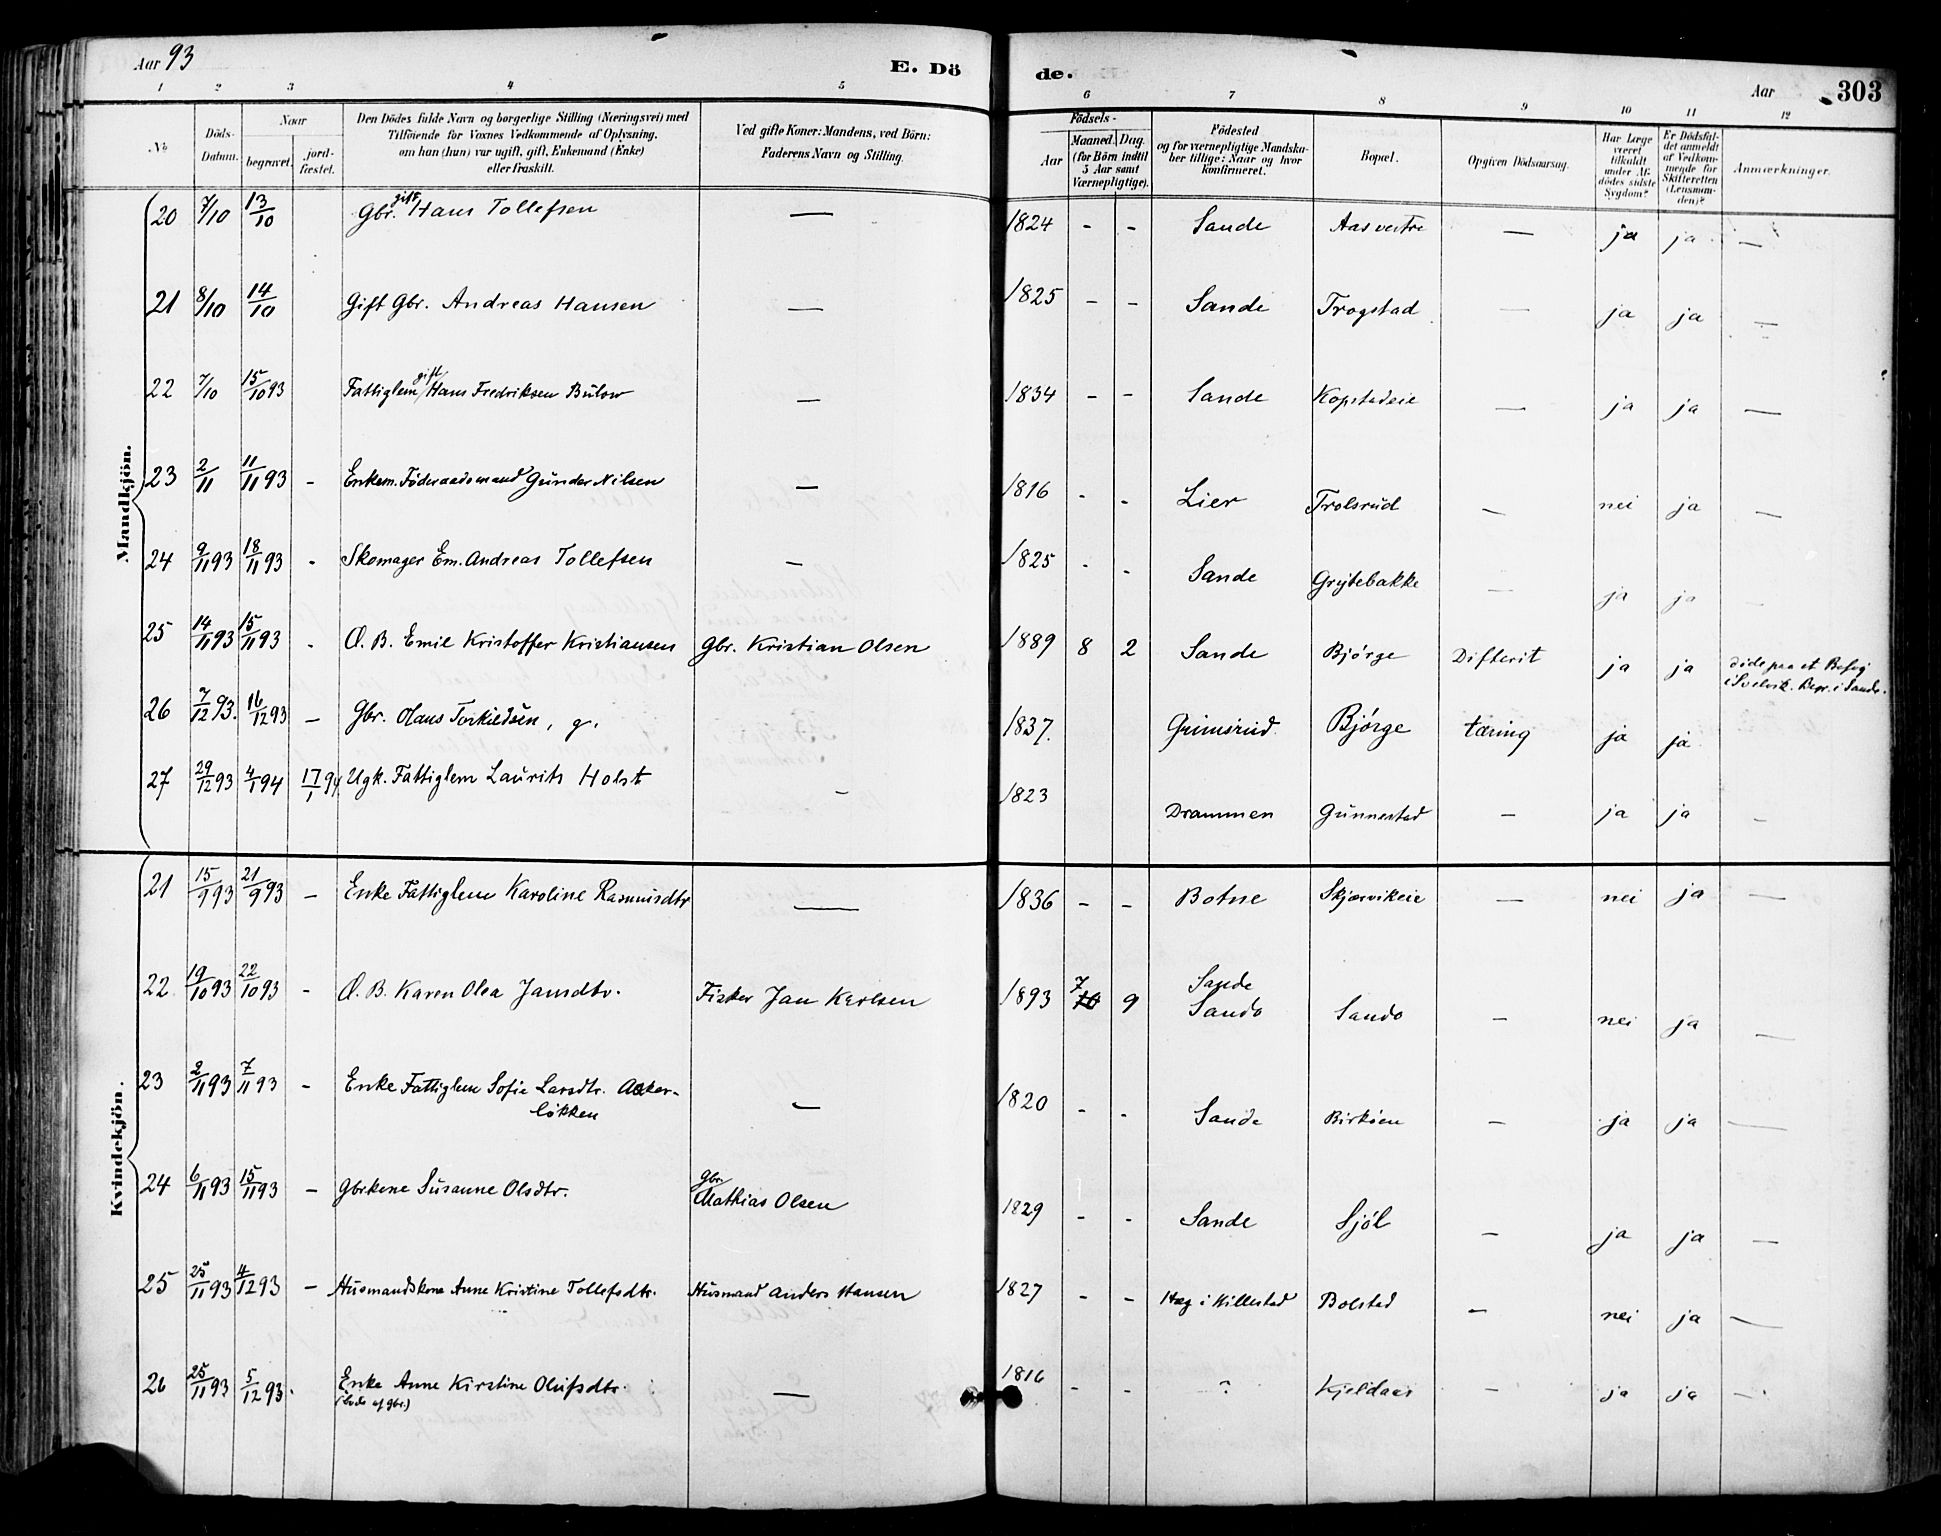 Aar 93
E. Dö
de.
Aar
303
1 2 3 4 5 6 7 8 9 10 11 12
No
Döds-Datum.
Naar
begravet.
jord-fæstet.
Den Dödes fulde Navn og borgerlige Stilling (Næringsvei) med
Tilföiende for Voxnes Vedkommende af Oplysning,
om han (hun) var ugift, gift, Enkemand (Enke)
eller fraskilt.
Ved gifte Koner: Mandens, ved Börn:
Faderens Navn og Stilling.
Födsels-
Aar
Maaned. Dag.
(for Börn indtil
5 Aar samt
Værnepligtige).
Födested
og for værnepligtige Mandska-
ber tillige: Naar og hvor
konfirmeret.
Bopæl.
Opgiven Dödsaarsag.
Har Læge
været
tilkaldt
under Af-
dödes sidste
Sygdom?
Er Dödsfal-
det anmeldt
af Vedkom-
mende for
Skifteretten
(Lensman-
den)?
Anmærkninger.
Mandkjön.
20 7/10 13/10 Gbr. gift Hans Tollefsen — 1824 - - Sande Aas vestre — ja ja —
21 8/10 14/10 Gift Gbr. Andreas Hansen — 1825 - - Sande Trogstad — ja ja —
22 7/10 15/10 93 Fattiglem gift Hans Fredriksen Bülow — 1834 - - Sande Kopstadeie — ja ja —
23 2/11 11/11 93 - Enkem. Föderaadsmand Gunder Nilsen — 1816 - - Lier Trolsrud — nei ja —
24 9/11 93 18/11 93 - Skomager Em. Andreas Tollefsen — 1825 - - Sande Grytebakke — ja ja —
25 14/11 93 15/11 93 - Æ. B. Emil Kristoffer Kristiansen Gbr. Kristian Olsen 1889 8 2 Sande Bjørge Difterit ja ja døde paa et Besøg
i Svelvik. Begr. i Sande.
26 7/12 93. 16/12 93 — Gbr. Olaus Torkildsen, g. 1837. Grimsrud Bjørge tæring ja ja
27 29/12 93 4/1 94 17/1 94 Ugk. Fattiglem Laurits Holst - 1823 Drammen Gunnestad — ja ja —
Kvindekjön.
21 15/9 93 21/9 93 — Enke Fattiglem Karoline Rasmusdtr — 1836 - - Botne Skjærvikeie — nei ja —
22 19/10 93 22/10 93 - Æ. B. Karen Olea Jansdtr. Fisker Jan Karlsen 1893 7 9 Sande
Sando Sando — nei ja —
23 2/11 93 7/11 93 - Enke Fattiglem Sofie Larsdtr. Asker-
løkken — 1820 - - Sande Birkøen — ja ja —
24 6/11 93 15/11 93 — Gbrkone Susanne Olsdtr. Gbr.
Mathias Olsen 1829 - - Sande Sjøl — ja ja —
25 25/11 93 4/12 93 — Husmandskone Anne Kristine Tollefsdtr. Husmand Anders Hansen 1827 - - Hæg i Hillestad Bolstad — nei ja —
26 25/11 93 5/12 93. Enke Anne Kirstine Olufsdtr.
af gbr.) — 1816 - - ? Kjeldaas — ja ja —